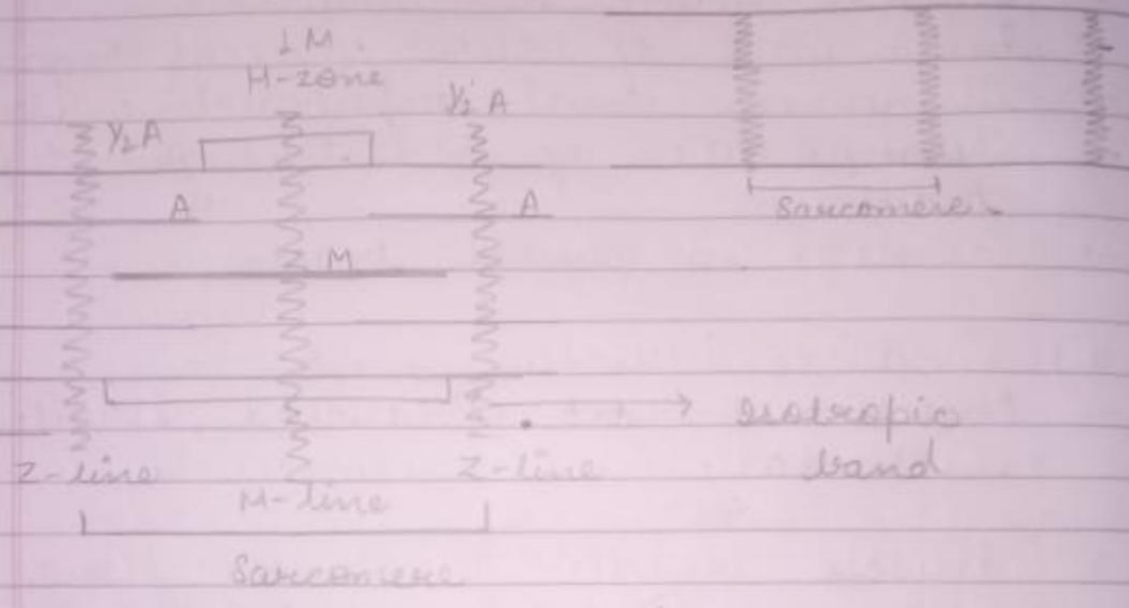 1 M
H-zone
1/2 A
1/2 A
Sarcomere
A
A
M
Isotropic
band
Z-line
Z-line
M-line
Sarcomere